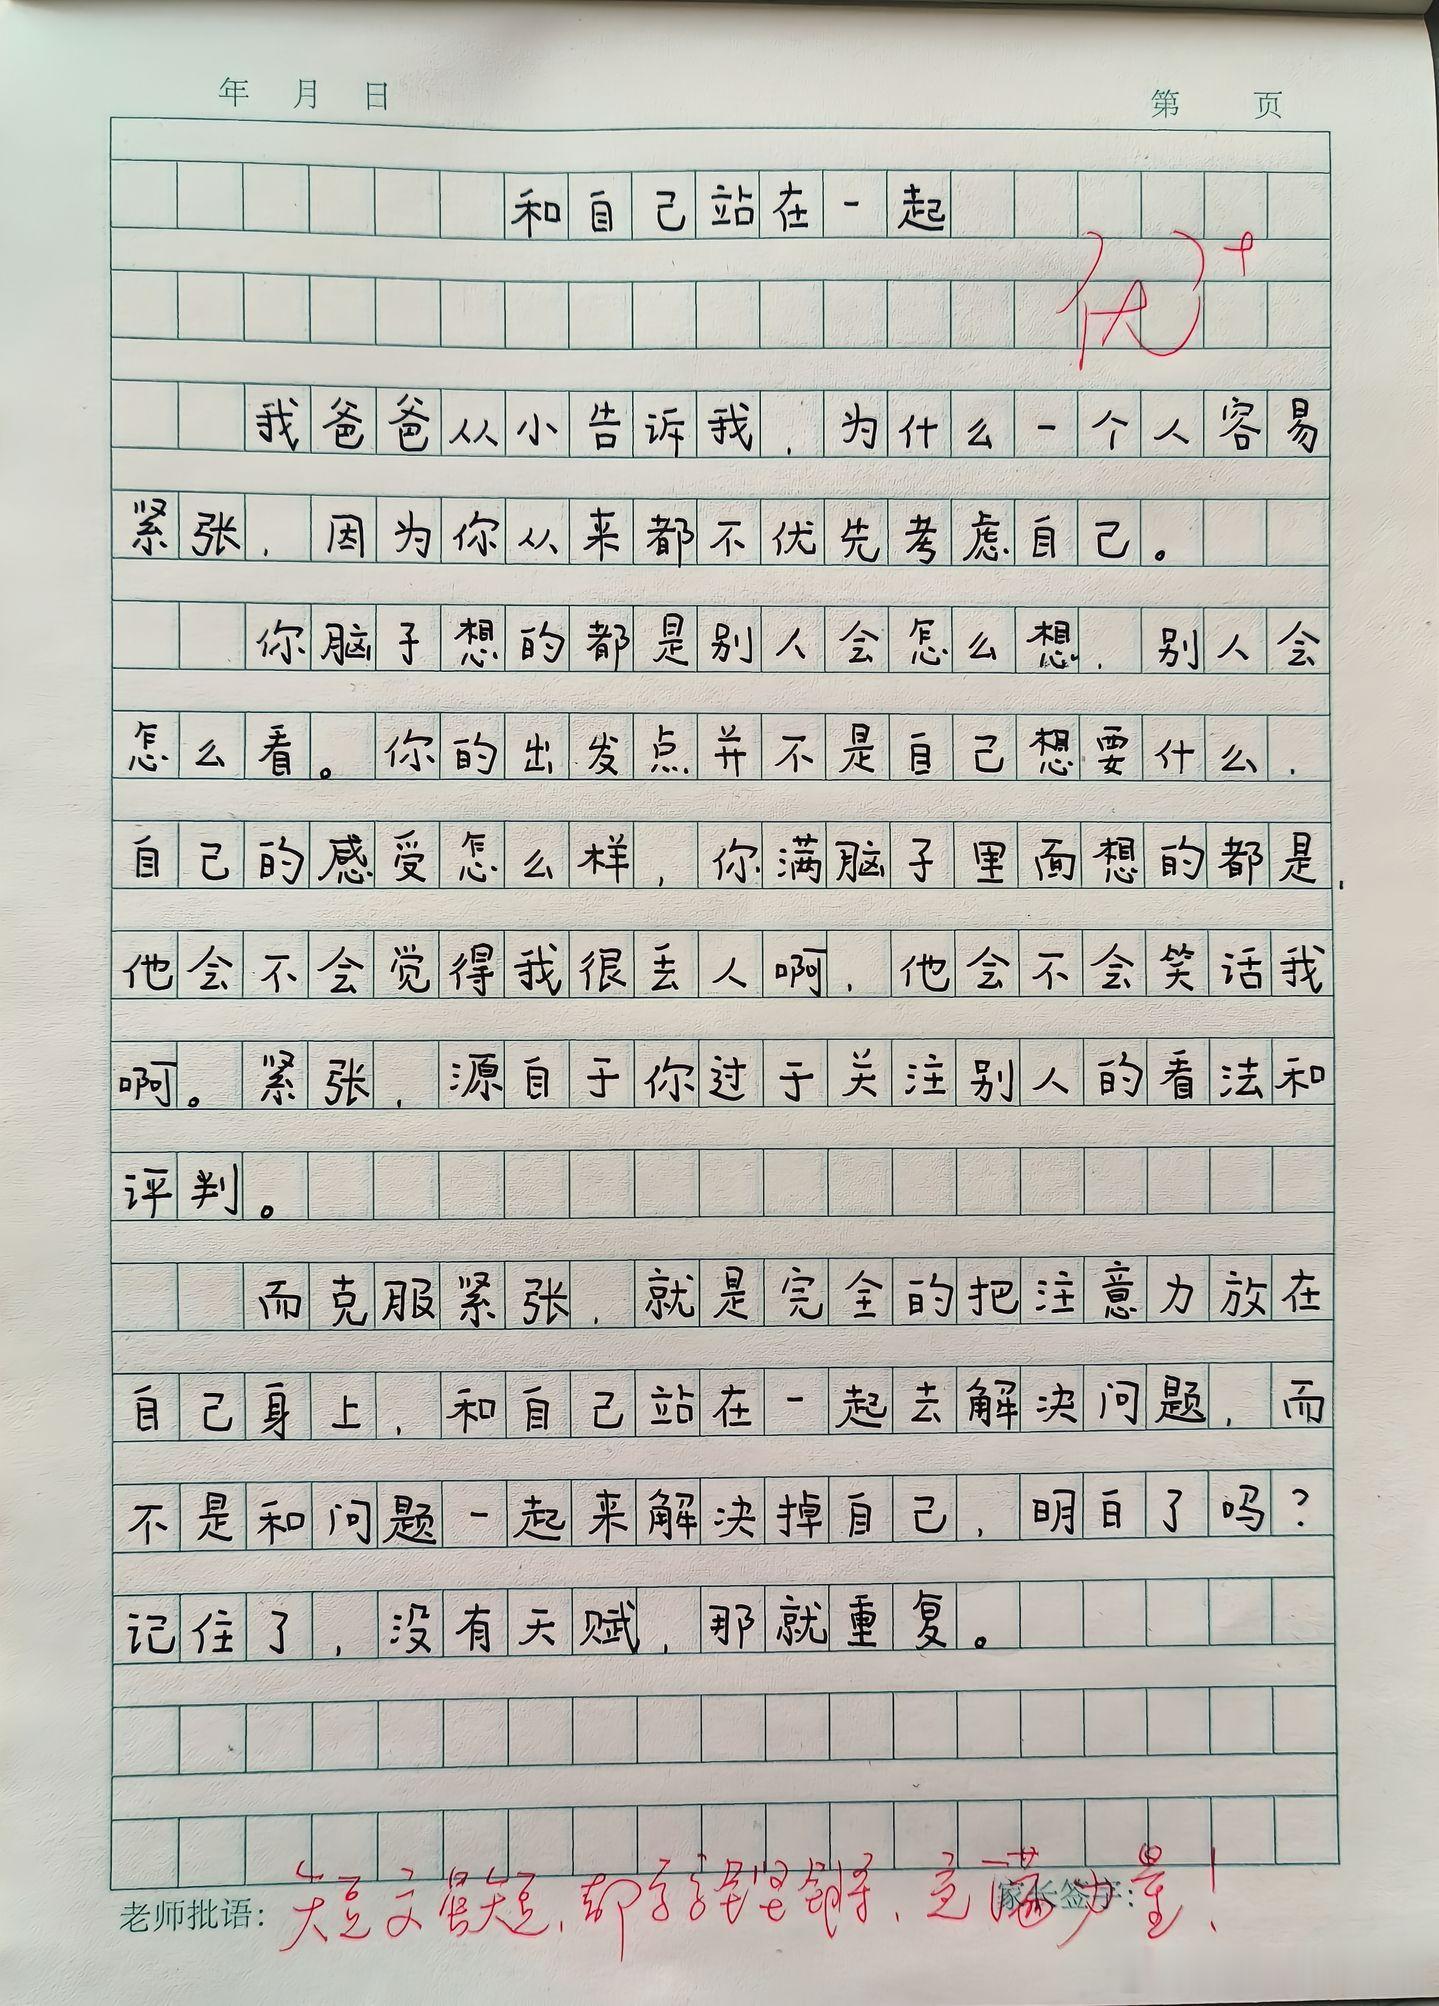 年 月 日 第 页
和自己站在一起
优+
我爸爸从小告诉我，为什么一个人容易
紧张，因为你从来都不优先考虑自己。
你脑子想的都是别人会怎么想，别人会
怎么看。你的出发点并不是自己想要什么，
自己的感受怎么样，你满脑子里面想的都是，
他会不会觉得我很丢人啊，他会不会笑话我
啊。紧张，源自于你过于关注别人的看法和
评判。
而克服紧张，就是完全的把注意力放在
自己身上，和自己站在一起去解决问题，而
不是和问题一起来解决掉自己，明白了吗？
记住了，没有天赋，那就重复。
老师批语： 短文虽短，却字字铿锵，充满力量！
家长签字：